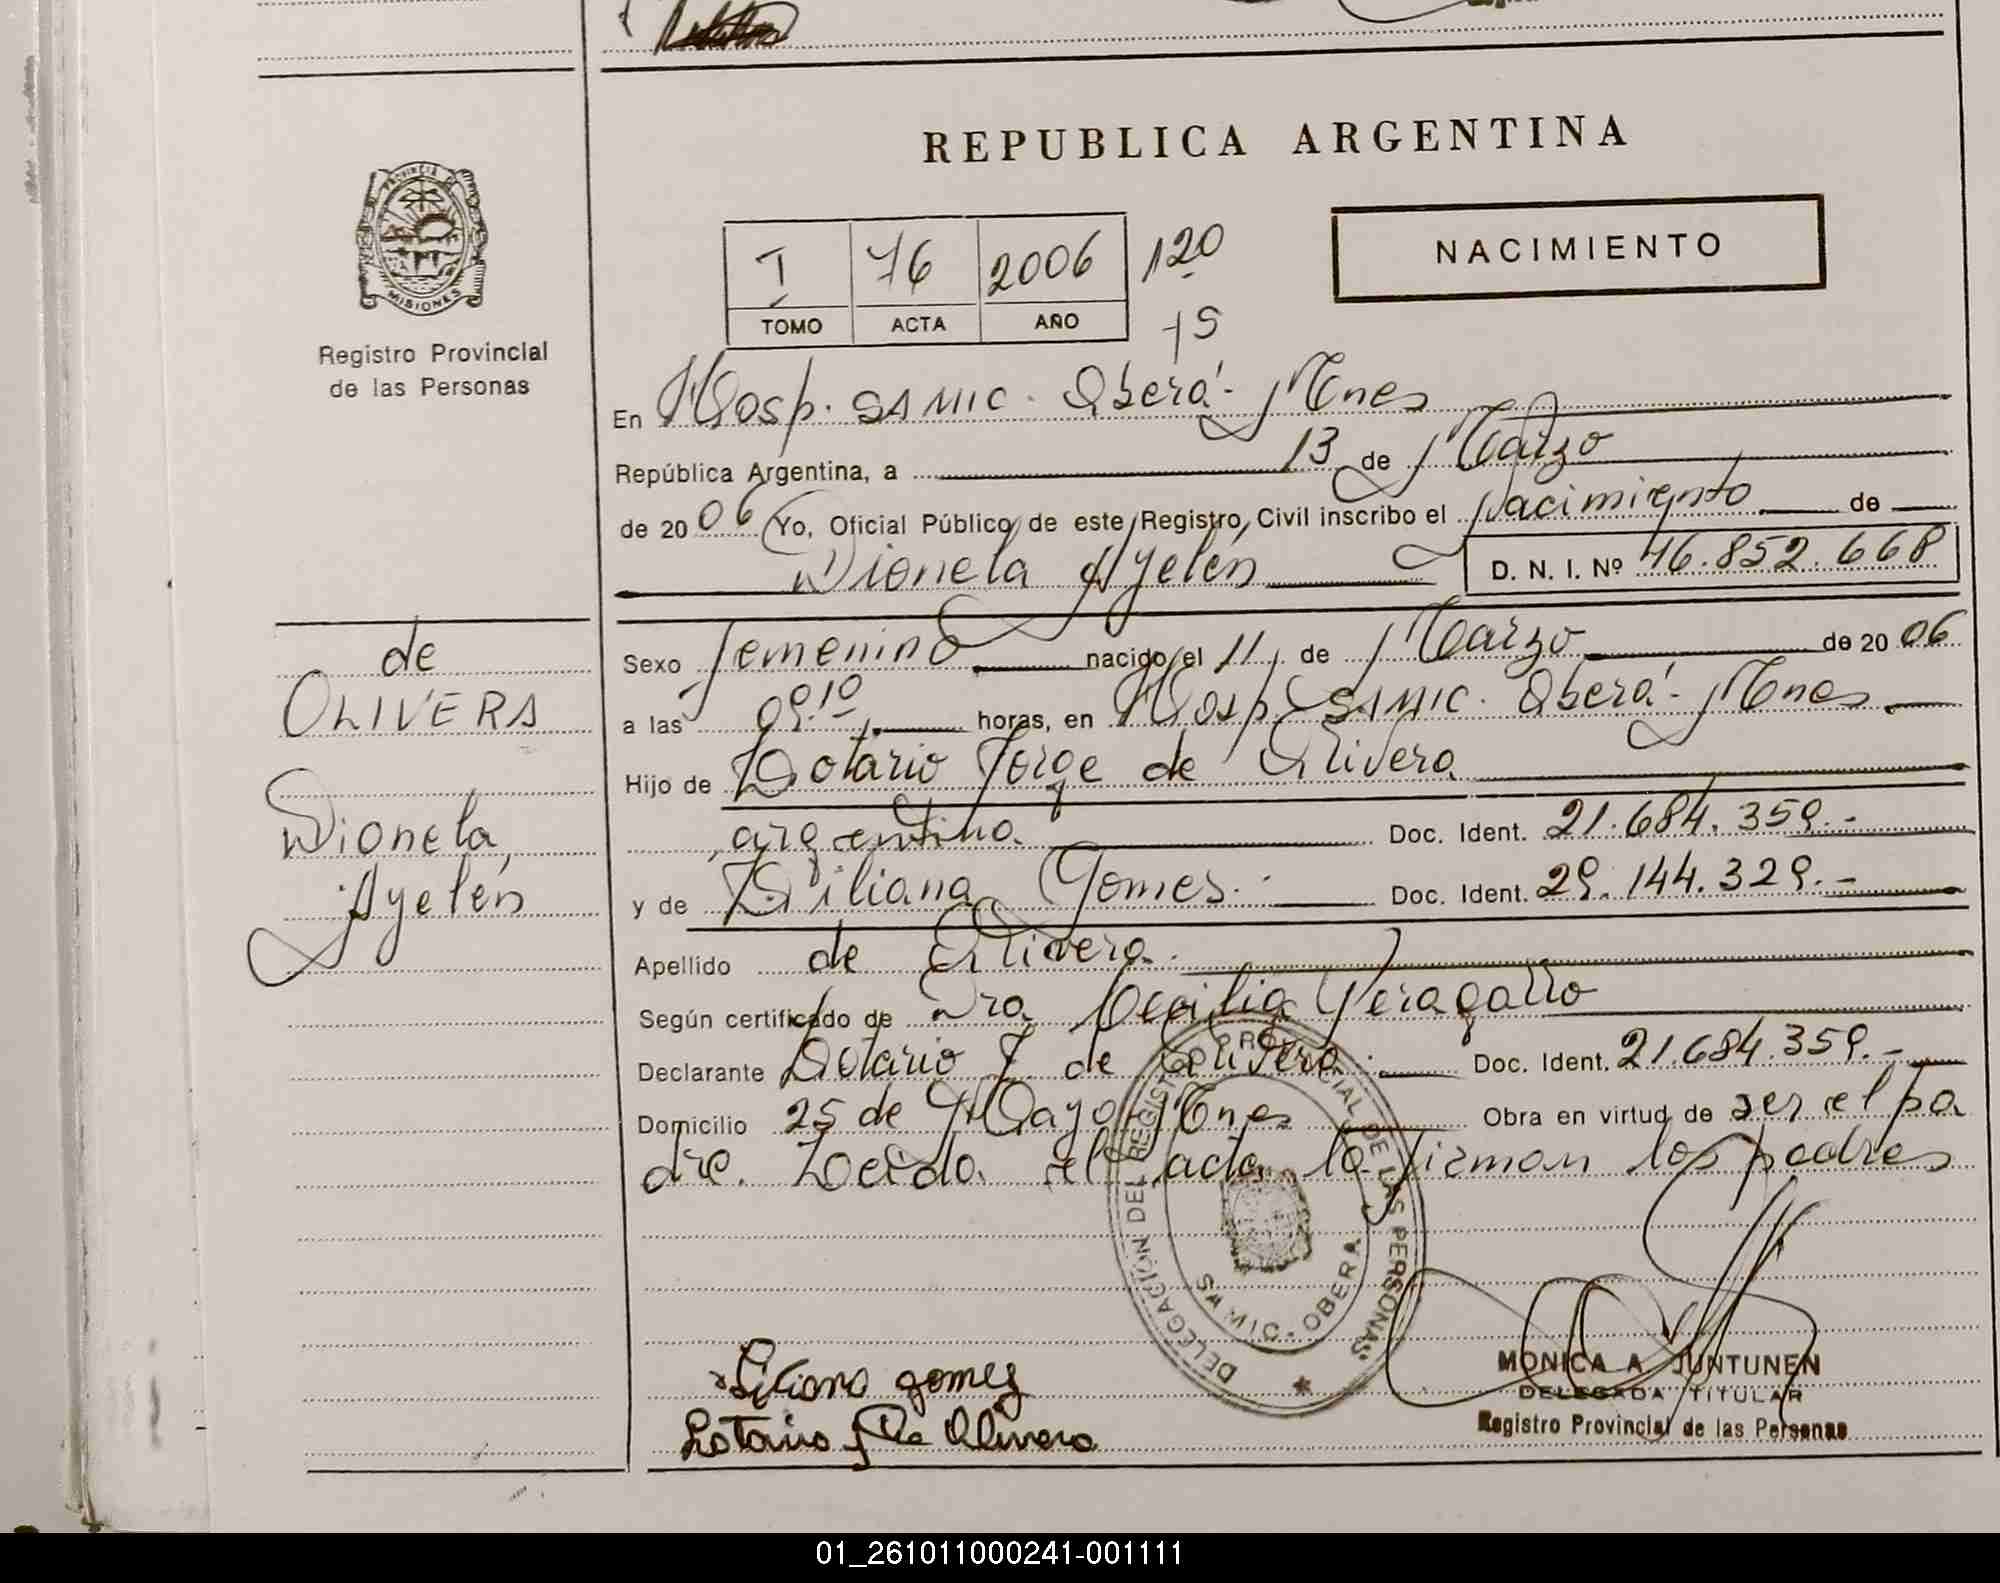 REPUBLICA ARGENTINA
PROVINCIA DE MISIONES
Registro Provincial
de las Personas
NACIMIENTO
I 76 2006 120
TOMO ACTA AÑO
75
En Hosp. SAMIC. Oberá - Mnes
República Argentina, a 13 de Marzo
de 2006 Yo, Oficial Público de este Registro Civil inscribo el Nacimiento de
Dionela Ayelén D. N. I. Nº 46.852.668
de
OLIVERA
Dionela
Ayelén
Sexo femenino nacido el 11 de Marzo de 2006
a las 09.10 horas, en Hosp. SAMIC. Oberá - Mnes
Hijo de Lotario Jorge de Olivera
argentina Doc. Ident. 21.684.359.-
y de Liliana Gomes.- Doc. Ident. 29.144.329.-
Apellido de Olivera.
Según certificado de Dra Cecilia Peragallo
Declarante Lotario J de Olivera.- Doc. Ident. 21.684.359.-
Domicilio 25 de Mayo Mnes Obra en virtud de ser el pa
dre. Leída el acta la firman los padres
DELEGACION DEL REGISTRO PROVINCIAL DE LAS PERSONAS
SAMIC - OBERA
Liliana gomes
Lotario J De Olivera
MONICA A JUNTUNEN
DELEGADA TITULAR
Registro Provincial de las Personas
01_261011000241-001111